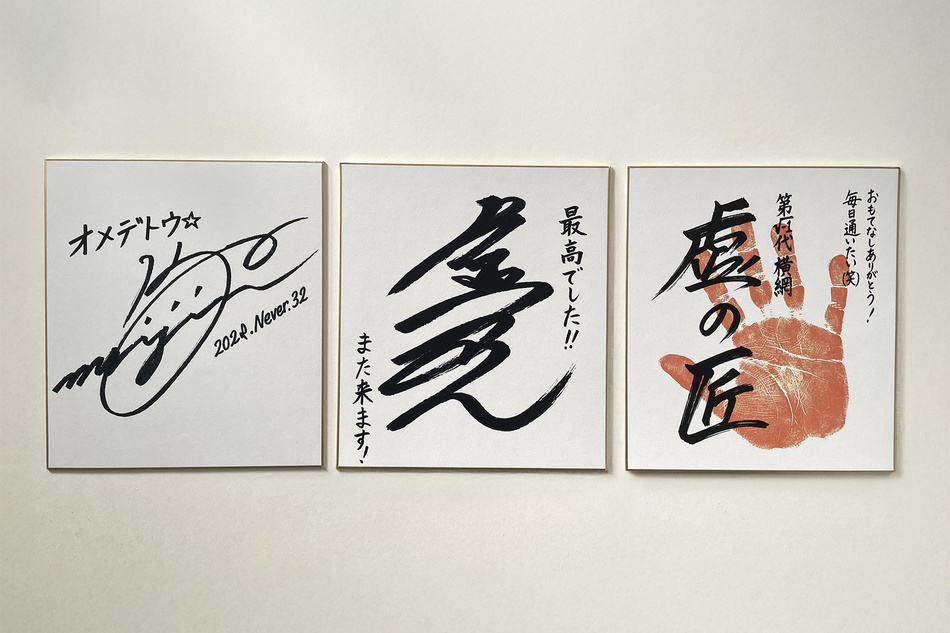 オメデトウ☆
202.Never.32
最高でした!!
また来ます!
おもてなしありがとう!
毎日通いたい(笑)
第√1代横綱
虚の匠